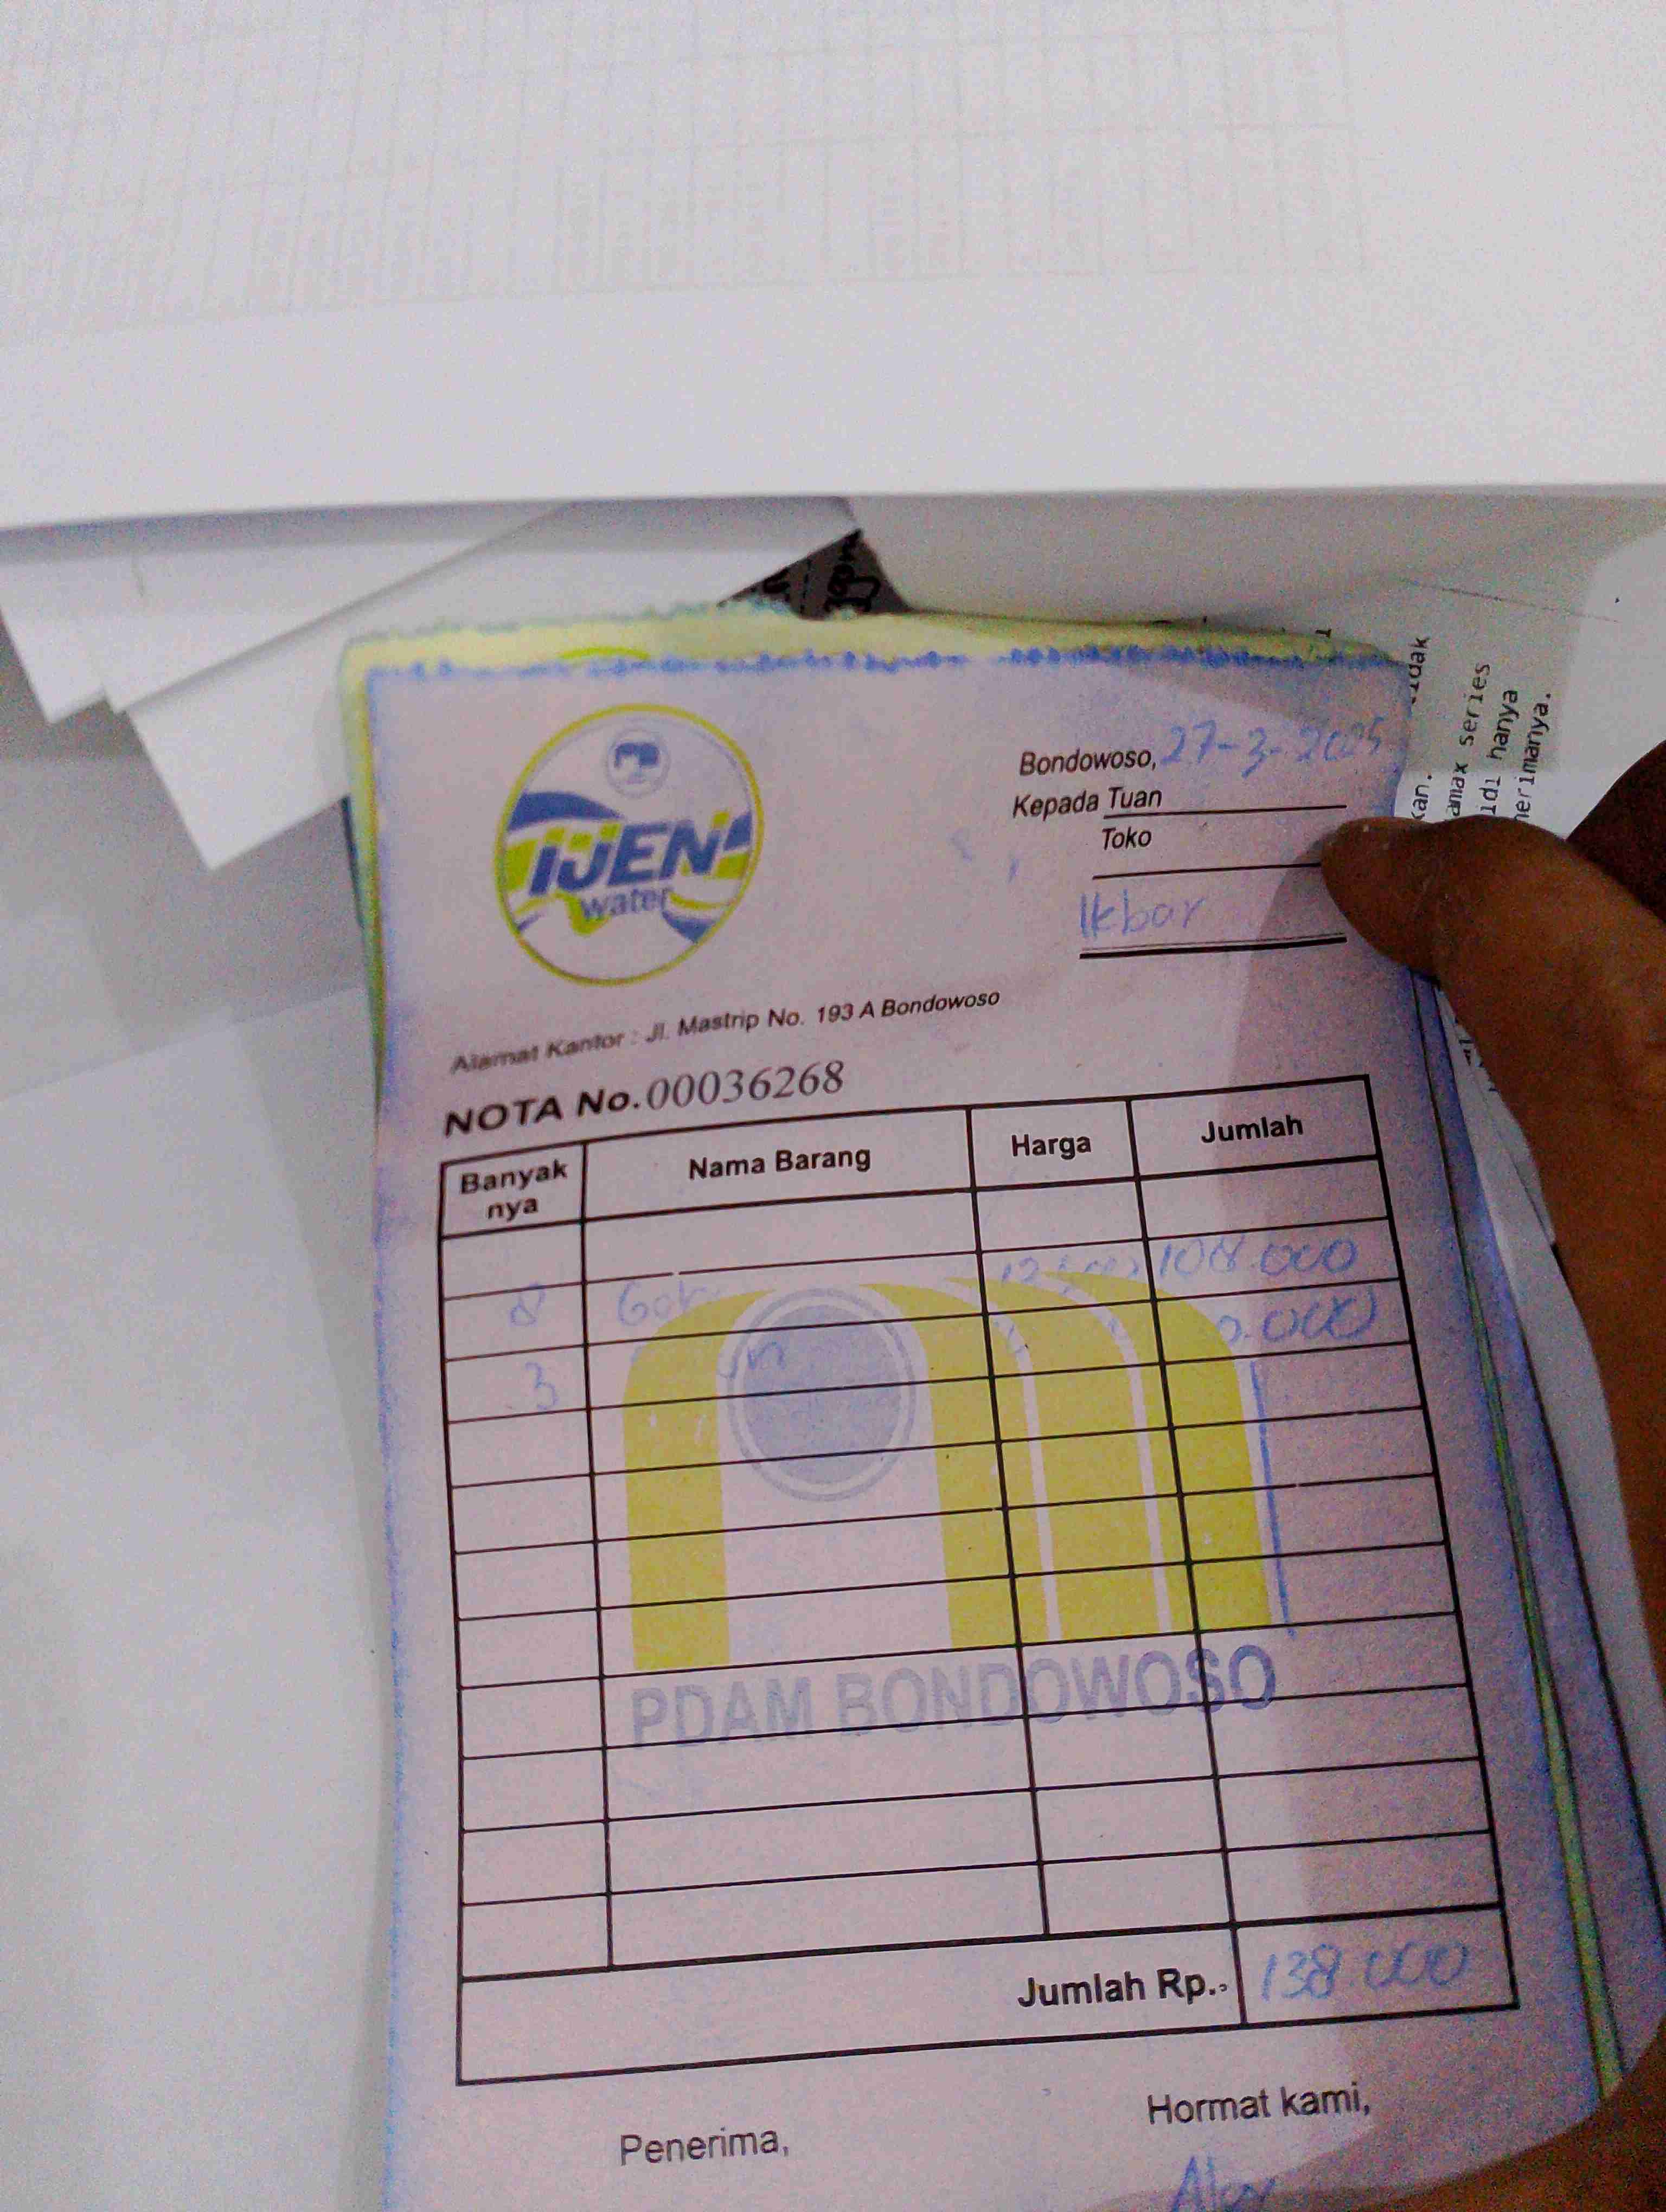 IJEN
water
Bondowoso, 27-3-2025
Kepada Tuan
Toko
Ikbar
Alamat Kantor : Jl. Mastrip No. 193 A Bondowoso
NOTA No. 00036268
Banyak nya Nama Barang Harga Jumlah
8 108.000
3
PDAM BONDOWOSO
Jumlah Rp.- 138.000
Penerima, Hormat kami,
idak
kan.
amax series
idi hanya
nerimanya.